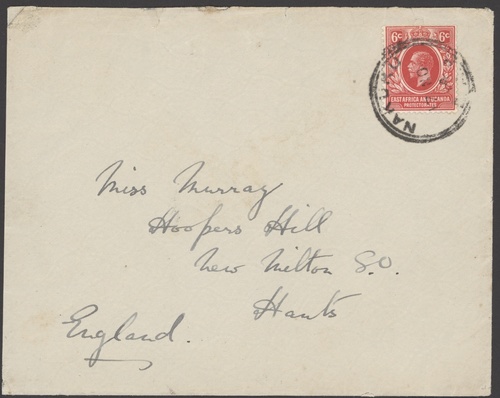 6c 6c
EAST AFRICA AND UGANDA
PROTECTORATES
Miss Murray
Hoopers Hill
New Milton S.O.
Hants
England.